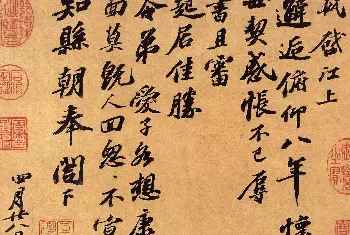 軾啓江上
邂逅俯仰八年懷
世契感悵不已辱
書且審
起居佳勝
令弟愛子各想康
面莫既人回怱〻不宣
知縣朝奉閣下
四月廿八